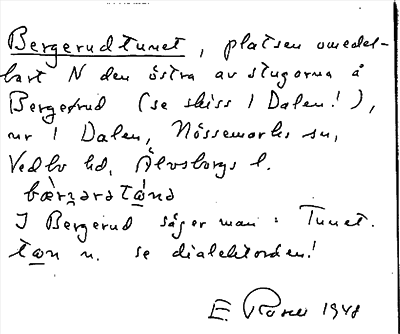 Bergerudtunet, platsen omedel-
bart N den östra av stugorna å
Bergerud (se skiss 1 Dalen!),
nr 1 Dalen, Nössemarks sn,
Vedbo hd, Älvsborgs l.
bærgərətånə
I Bergerud säger man: Tunet.
tøn n. se dialektorden!
E. 1948